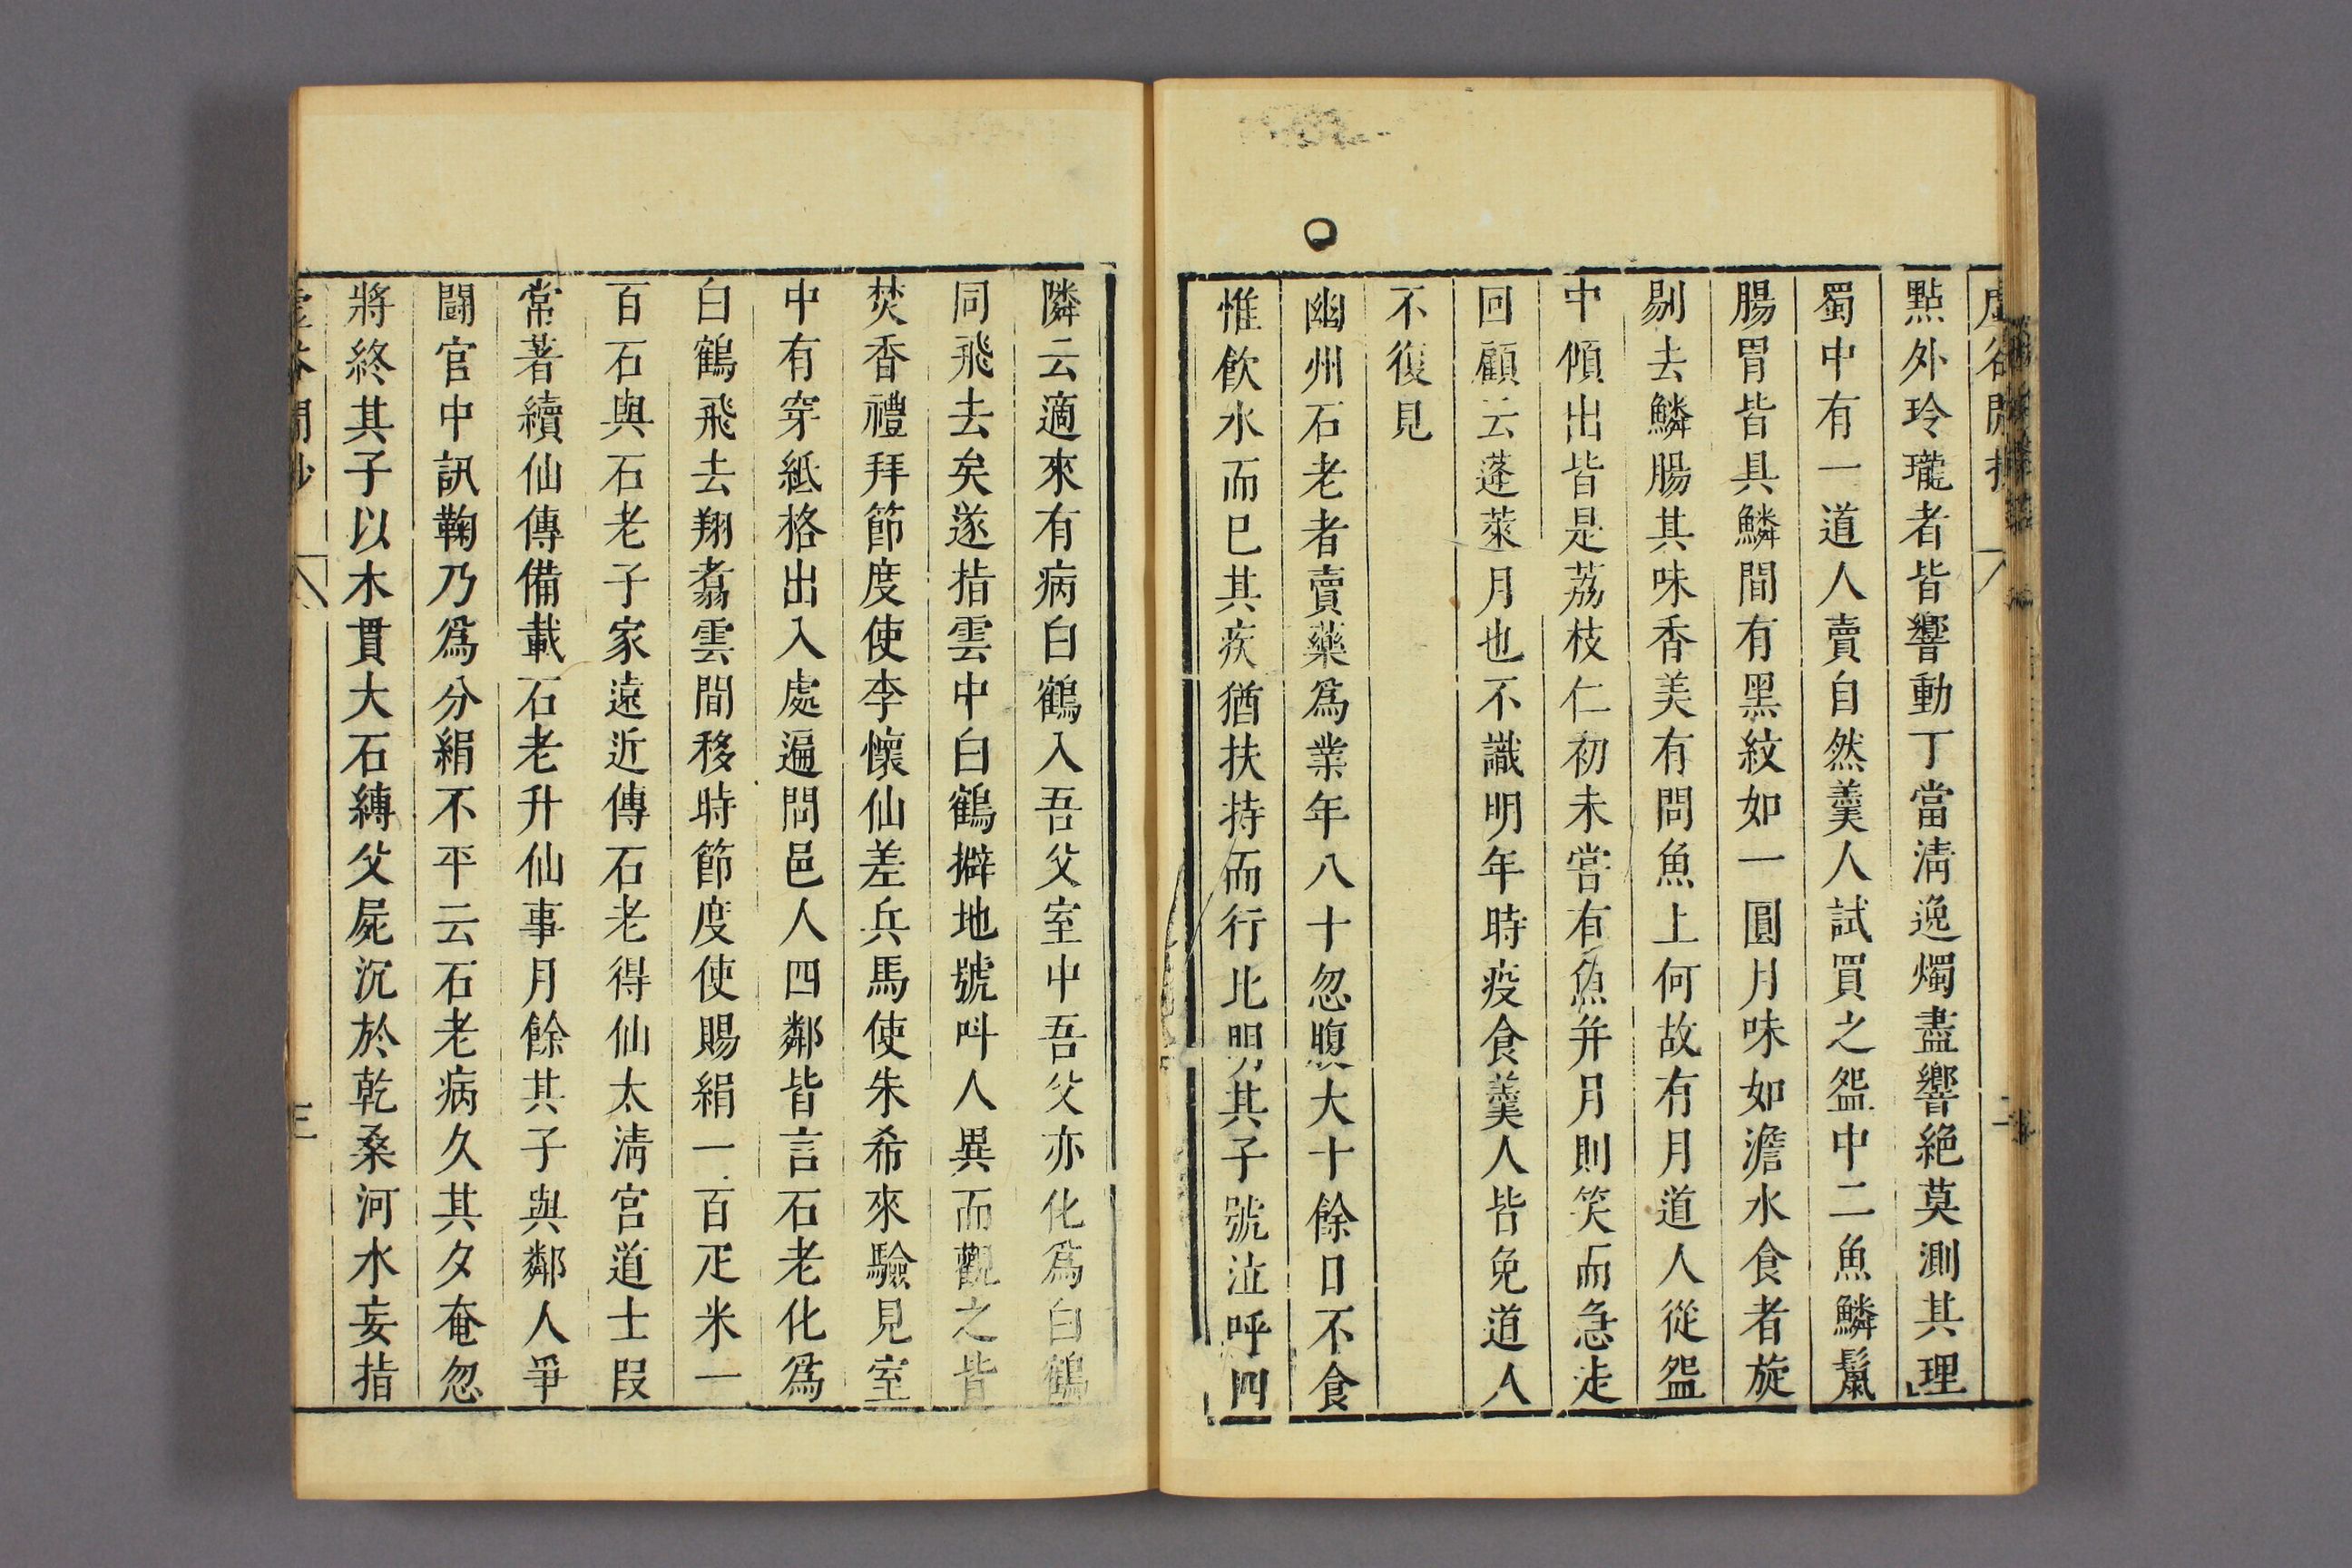 點外玲瓏者皆響動丁當淸逸燭盡響絶莫測其理
蜀中有一道人賣自然羹人試買之盌中二魚鱗鬣
腸胃皆具鱗間有黑紋如一圓月味如澹水食者旋
剔去鱗腸其味香美有問魚上何故有月道人從盌
中傾出皆是荔枝仁初未嘗有魚并月則笑而急走
回顧云蓬萊月也不識明年時疫食羹人皆免道人
不復見
幽州石老者賣藥爲業年八十忽腹大十餘日不食
惟飮水而已其疾猶扶持而行比明其子號泣呼四
隣云適來有病白鶴入吾父室中吾父亦化爲白鶴
同飛去矣遂指雲中白鶴擗地號呌人異而觀之皆
焚香禮拜節度使李懷仙差兵馬使朱希來驗見室
中有穿紙格出入處遍問邑人四鄰皆言石老化爲
白鶴飛去翔翥雲間移時節度使賜絹一百疋米一
百石與石老子家遠近傳石老得仙太淸宮道士段
常著續仙傳備載石老升仙事月餘其子與鄰人爭
鬪官中訊鞠乃爲分絹不平云石老病久其夕奄忽
將終其子以木貫大石縛父屍沉於乾桑河水妄指
三